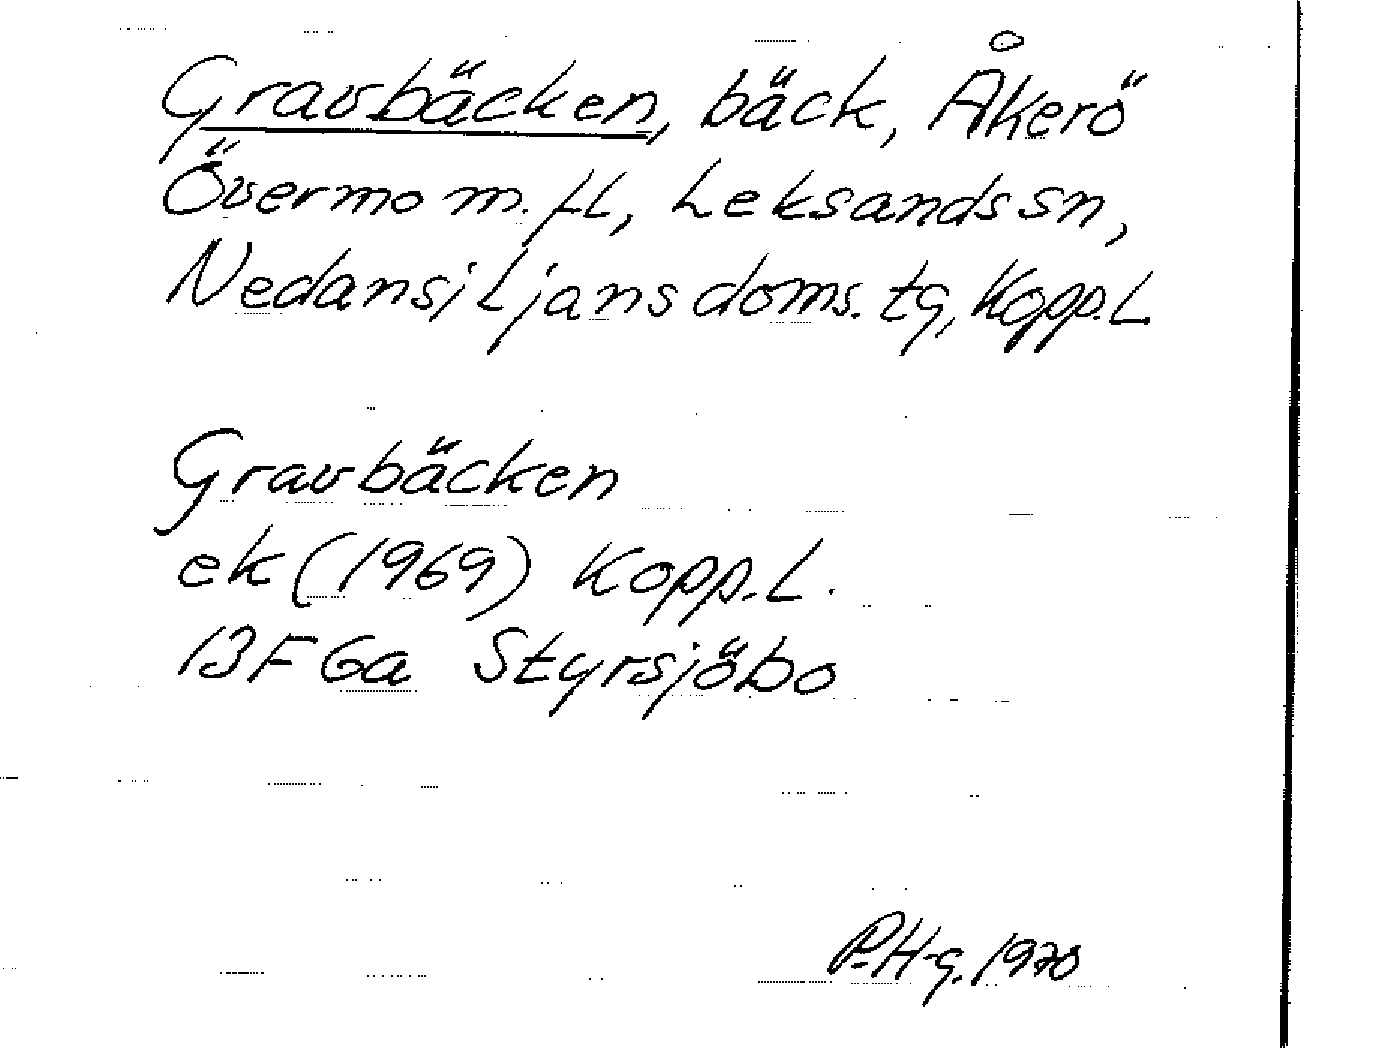 Gravbäcken, bäck, Åkerö
Övermo m.fl, Leksands sn,
Nedansiljans doms. tg, Kopp.L
Gravbäcken
ek (1969) Kopp.L.
13F 6a Styrsjöbo
P.H-g. 1970